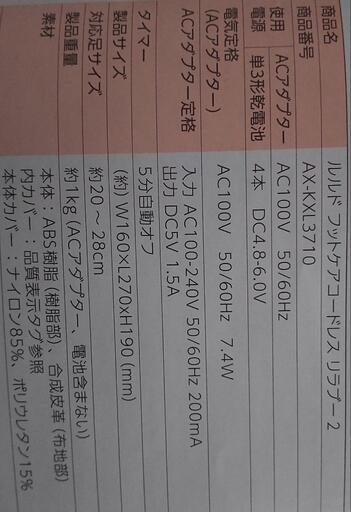 商品名 ルルド フットケアコードレス リラプー 2
商品番号 AX-KXL3710
使用電源 ACアダプター AC100V 50/60Hz
単3形乾電池 4本 DC4.8-6.0V
電気定格 (ACアダプター) AC100V 50/60Hz 7.4W
ACアダプター定格 入力 AC100-240V 50/60Hz 200mA
出力 DC5V 1.5A
タイマー 5分自動オフ
製品サイズ (約) W160×L270×H190 (mm)
対応足サイズ 約20～28cm
製品重量 約1kg (ACアダプター、電池含まない)
素材 本体：ABS樹脂 (樹脂部)、合成皮革 (布地部)
内カバー：品質表示タグ参照
本体カバー：ナイロン85%、ポリウレタン15%